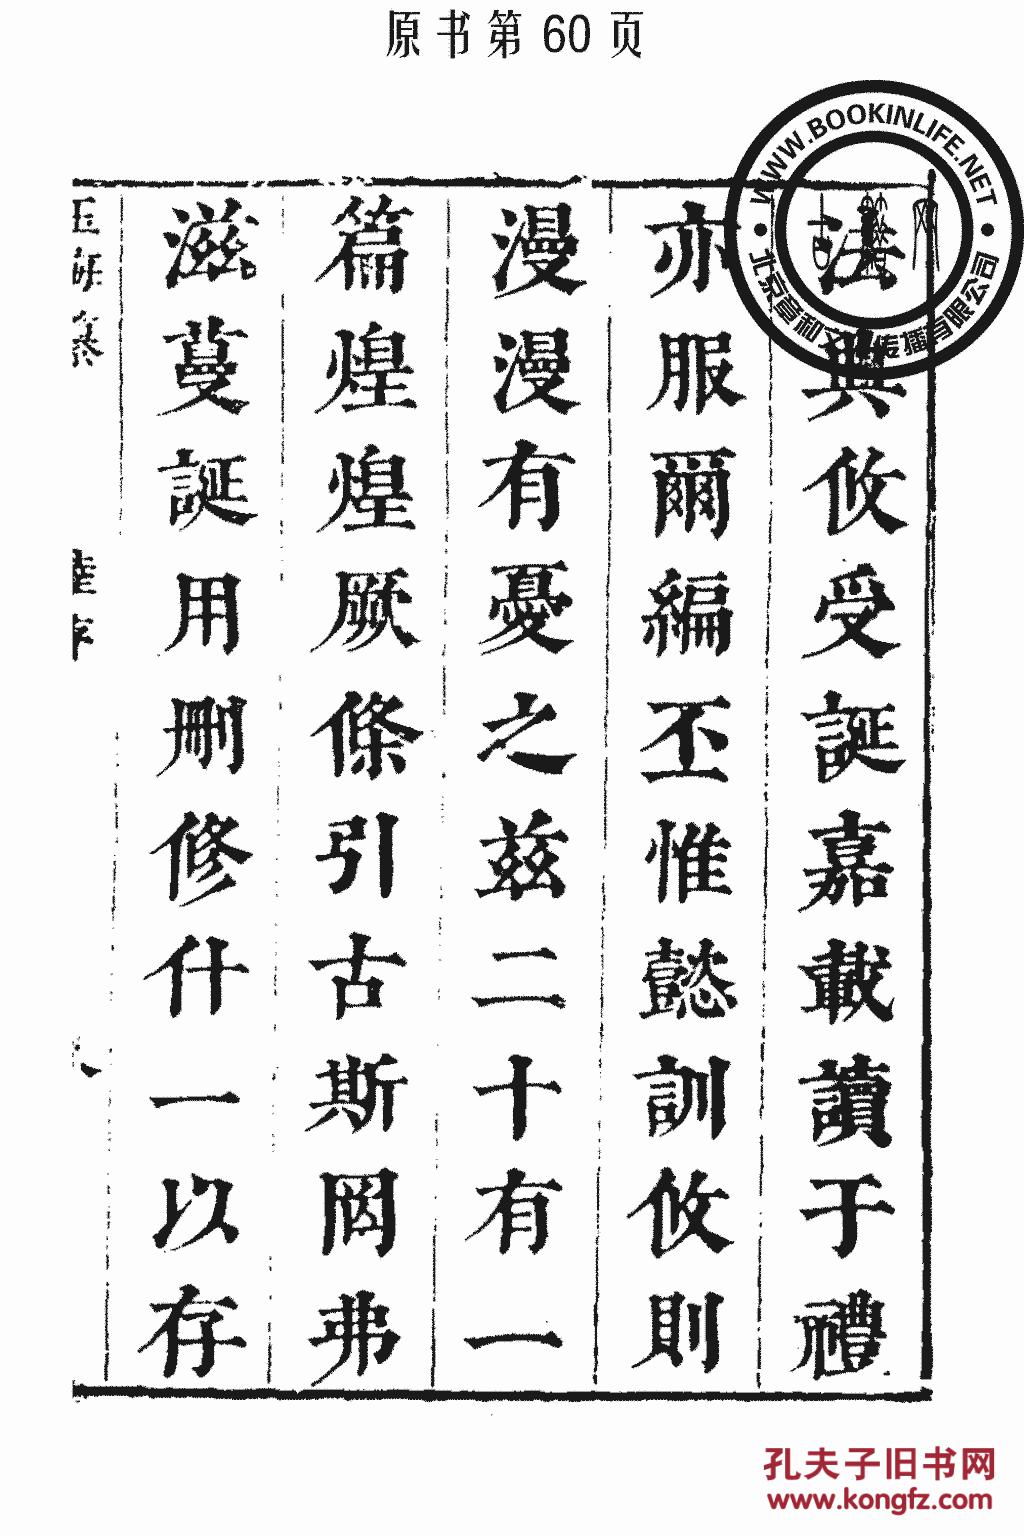 原书第 60 页
WWW.BOOKINLIFE.NET
法典攸受誕嘉載讀于禮
亦服爾編丕惟懿訓攸則
漫漫有憂之兹二十有一
篇煌煌厥條引古斯罔弗
滋蔓誕用刪修什一以存
孔夫子旧书网
www.kongfz.com